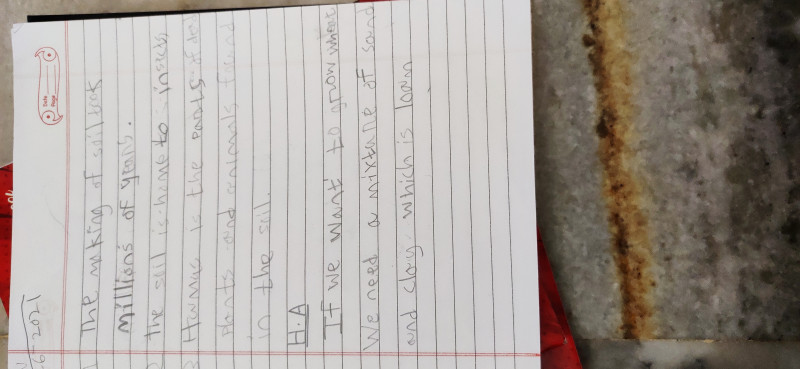 Date
Page
26-2021
The making of soil took
millions of years.
the soil is home to insects
Humus is the parts of dead
Plants and animals found
in the soil.
H.A
If we want to grow wheat
We need a mixture of sand
and clay which is loam